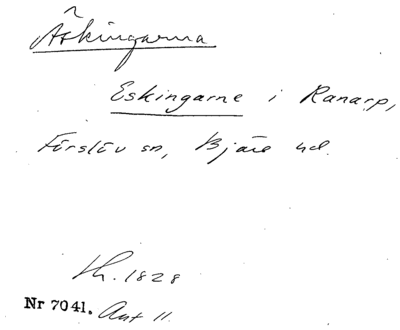 Äskingarna
Eskingarne i Ranarp,
Förslöv sn, Bjäre hd.
Lh. 1828
Nr 7041. Ant 11.